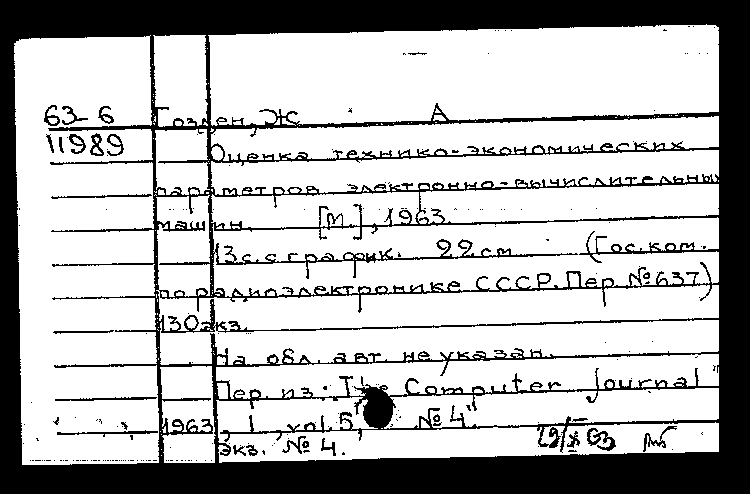 63-6 Гозден, Ж А
11989
Оценка технико-экономических
параметров электронно-вычислительных
машин. [М.], 1963.
13 с. с график. 22 см. (Гос. ком.
по радиоэлектронике СССР. Пер. №637)
130 экз.
На обл. авт. не указан.
Пер. из: The Computer Journal"
1963, 1, vol. 5, №4"
Экз. №4. 29/X 63